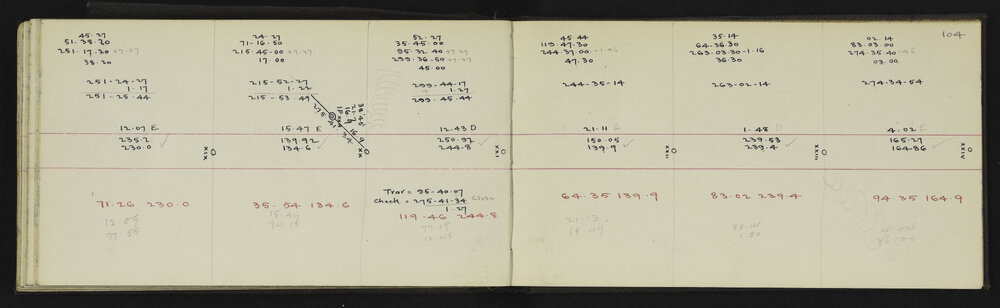 104
45.27
51.38.20
251.17.20 +7.07
38.20
251-24-27
1.17
251-25.44
12.07 E
235.2
230.0
XIX
71.26 230.0
12.09
77.55
24.27
71-16-50
215-45-00 +7.27
17.00
215-52-27
1.22
215-53.49
15.47 E
139.92
134.6
XX
35.54 134.6
15.49
74.15
52.27
35.45.00
95.32.40 +7.27
299.36.50 +7.27
45.00
299-44.17
+ 1.27
299.45.44
12.43 D
250.92
244.8
XXI
Trav = 95-40.07
Check = 275-41-34 Close
1.27
119.46 244.8
77.17
12.45
45.44
119.47.30
244.37.00 -1.46
47.30
244-35-14
21.11 E
150.05
139.9
XXII
64.35 139.9
21.13
68.47
35.14
64.36.30
263-03.30 -1.16
36.30
263-02-14
1.48 D
239.53
239.4
XXIII
83.02 239.4
88.14
1.50
02.14
83-03.00
274.35.40 -46
03.00
274-34-54
4.02 E
165.27
164.86
XXIV
94 35 164.9
4.04